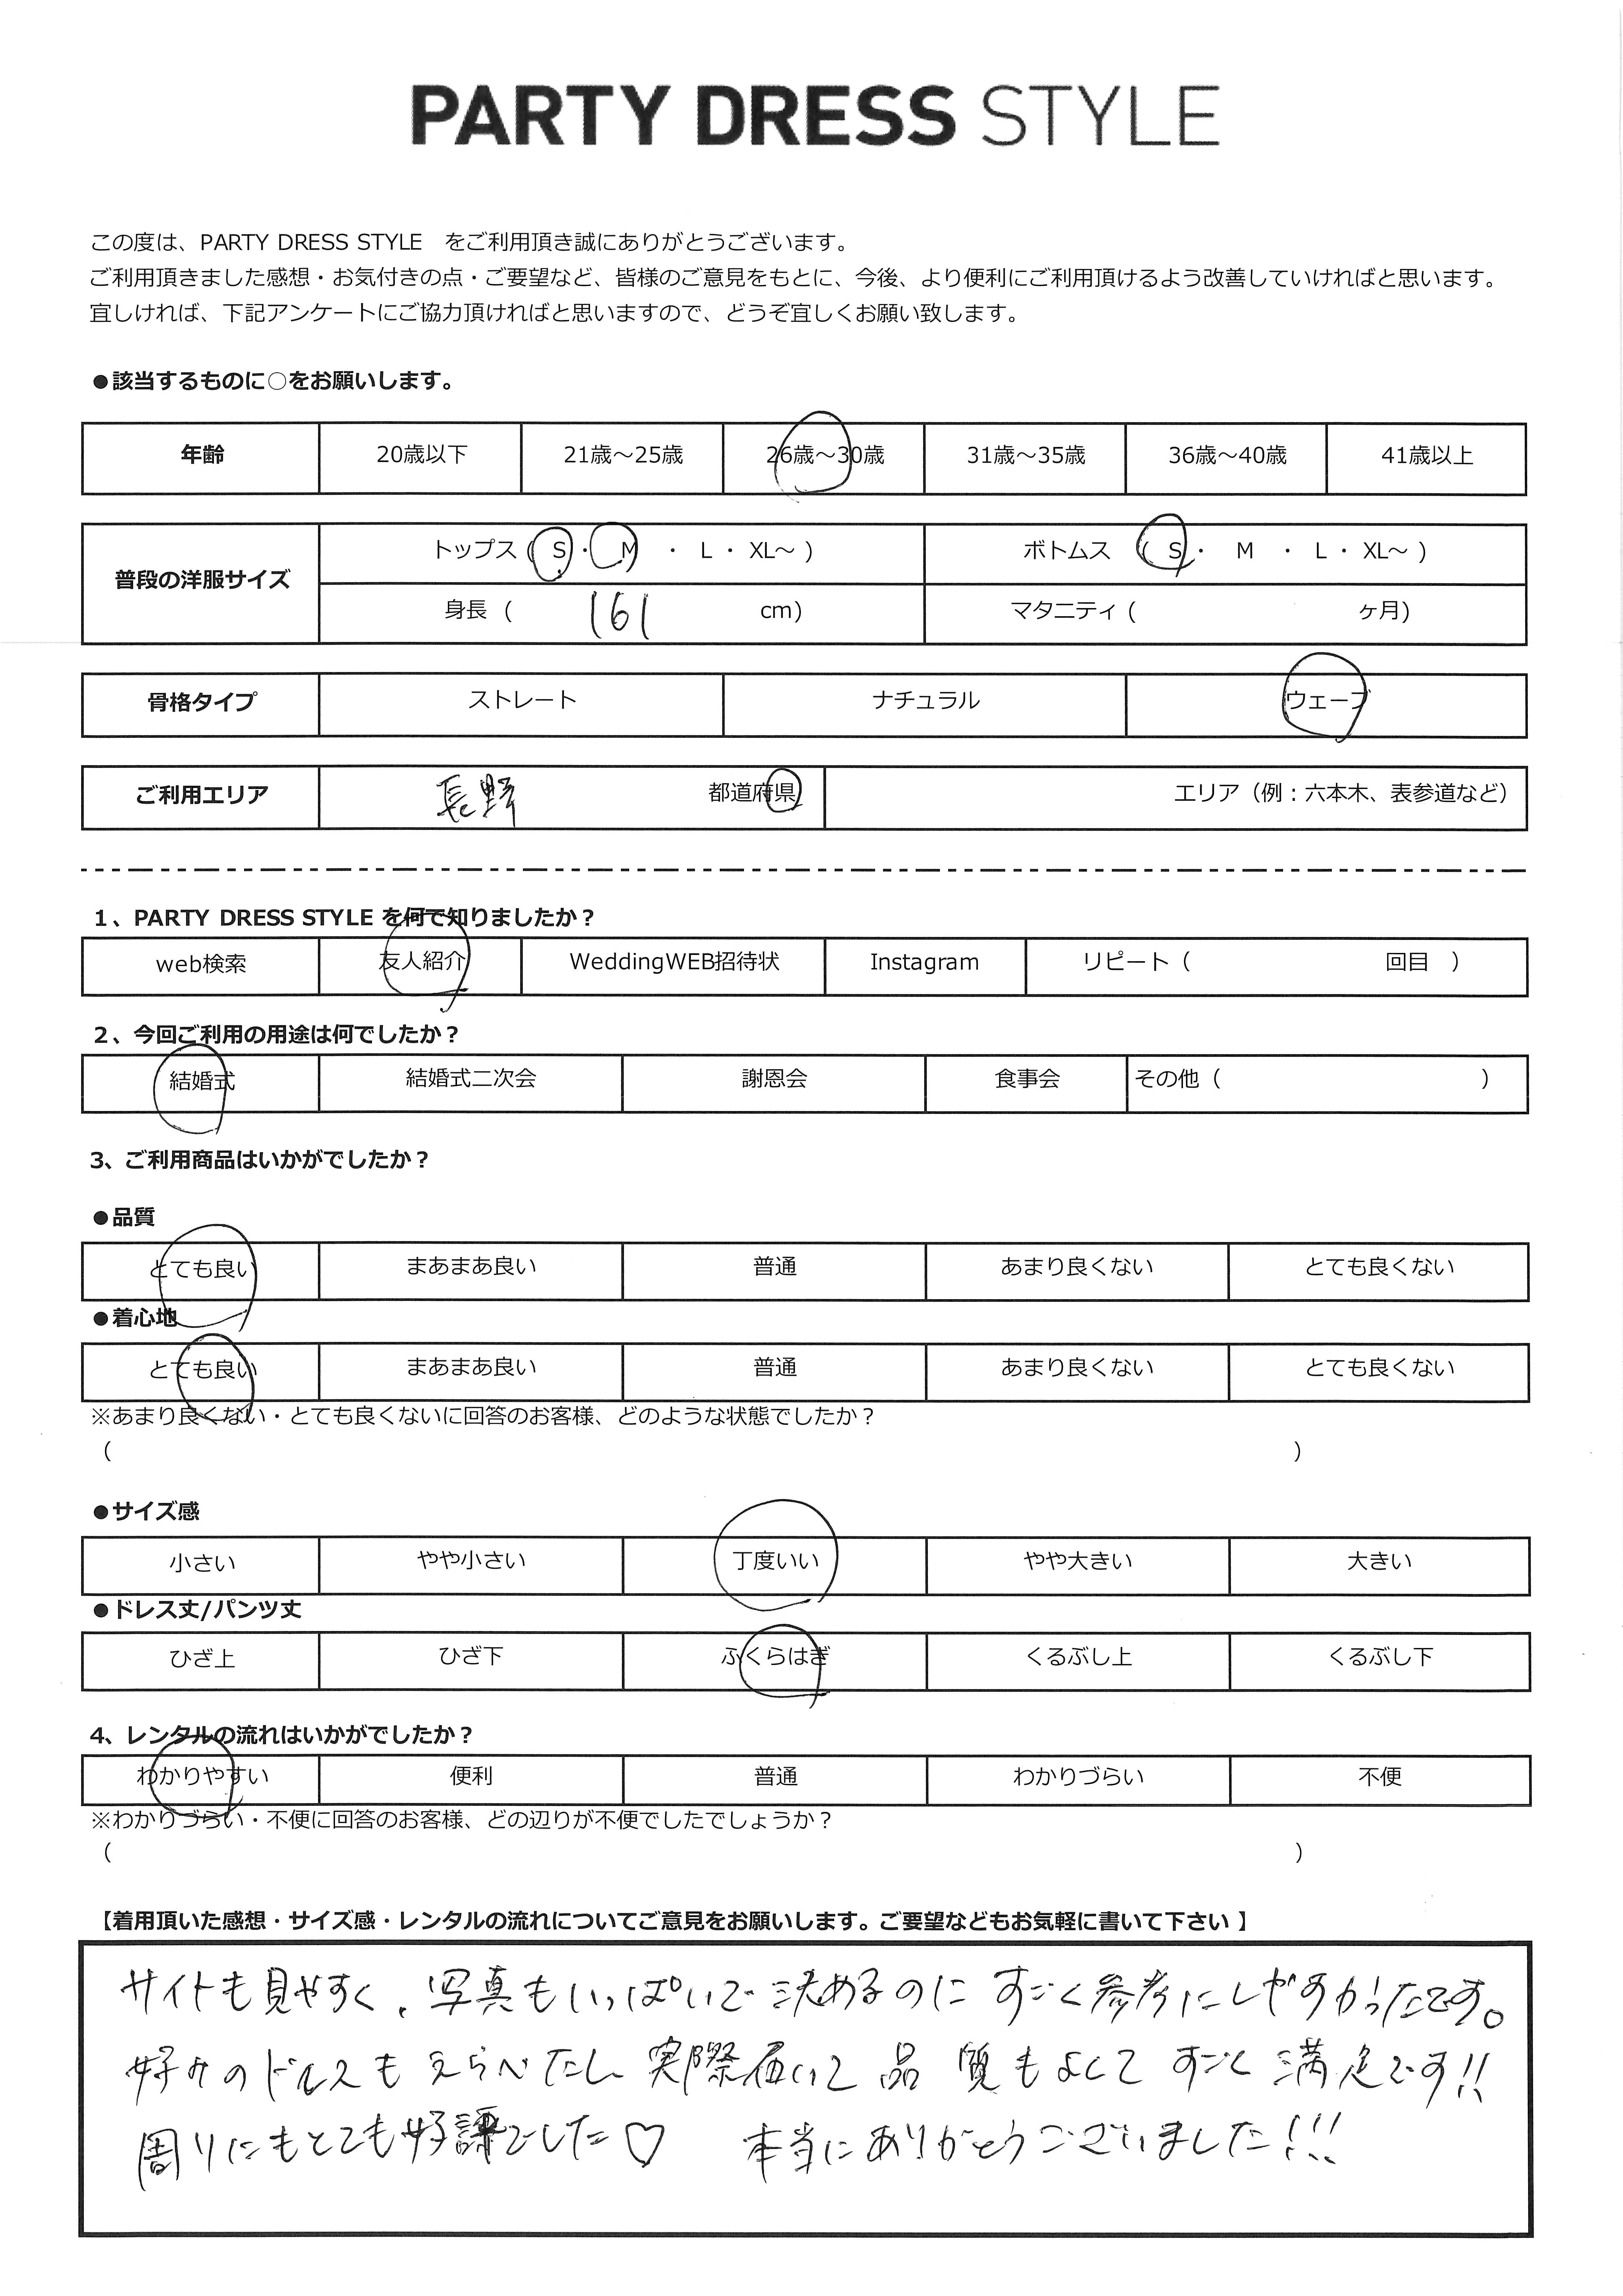 PARTY DRESS STYLE
この度は、PARTY DRESS STYLE　をご利用頂き誠にありがとうございます。
ご利用頂きました感想・お気付きの点・ご要望など、皆様のご意見をもとに、今後、より便利にご利用頂けるよう改善していければと思います。
宜しければ、下記アンケートにご協力頂ければと思いますので、どうぞ宜しくお願い致します。
●該当するものに○をお願いします。
年齢 20歳以下 21歳～25歳 26歳～30歳 31歳～35歳 36歳～40歳 41歳以上
普段の洋服サイズ トップス ( S ・ M ・ L ・ XL～ ) ボトムス ( S ・ M ・ L ・ XL～ )
身長 ( 161 cm) マタニティ ( ヶ月)
骨格タイプ ストレート ナチュラル ウェーブ
ご利用エリア 長野 都道府県 エリア（例：六本木、表参道など）
1、PARTY DRESS STYLE を何で知りましたか？
web検索 友人紹介 WeddingWEB招待状 Instagram リピート（ 回目 ）
2、今回ご利用の用途は何でしたか？
結婚式 結婚式二次会 謝恩会 食事会 その他（ ）
3、ご利用商品はいかがでしたか？
●品質
とても良い まあまあ良い 普通 あまり良くない とても良くない
●着心地
とても良い まあまあ良い 普通 あまり良くない とても良くない
※あまり良くない・とても良くないに回答のお客様、どのような状態でしたか？
（ ）
●サイズ感
小さい やや小さい 丁度いい やや大きい 大きい
●ドレス丈/パンツ丈
ひざ上 ひざ下 ふくらはぎ くるぶし上 くるぶし下
4、レンタルの流れはいかがでしたか？
わかりやすい 便利 普通 わかりづらい 不便
※わかりづらい・不便に回答のお客様、どの辺りが不便でしたでしょうか？
（ ）
【着用頂いた感想・サイズ感・レンタルの流れについてご意見をお願いします。ご要望などもお気軽に書いて下さい 】
サイトも見やすく、写真もいっぱいで決めるのに すごく参考にしやすかったです。
好みのドレスもえらべたし 実際届いて 品質もよくて すごく満足です!!
周りにもとても好評でした♡ 本当にありがとうございました!!!